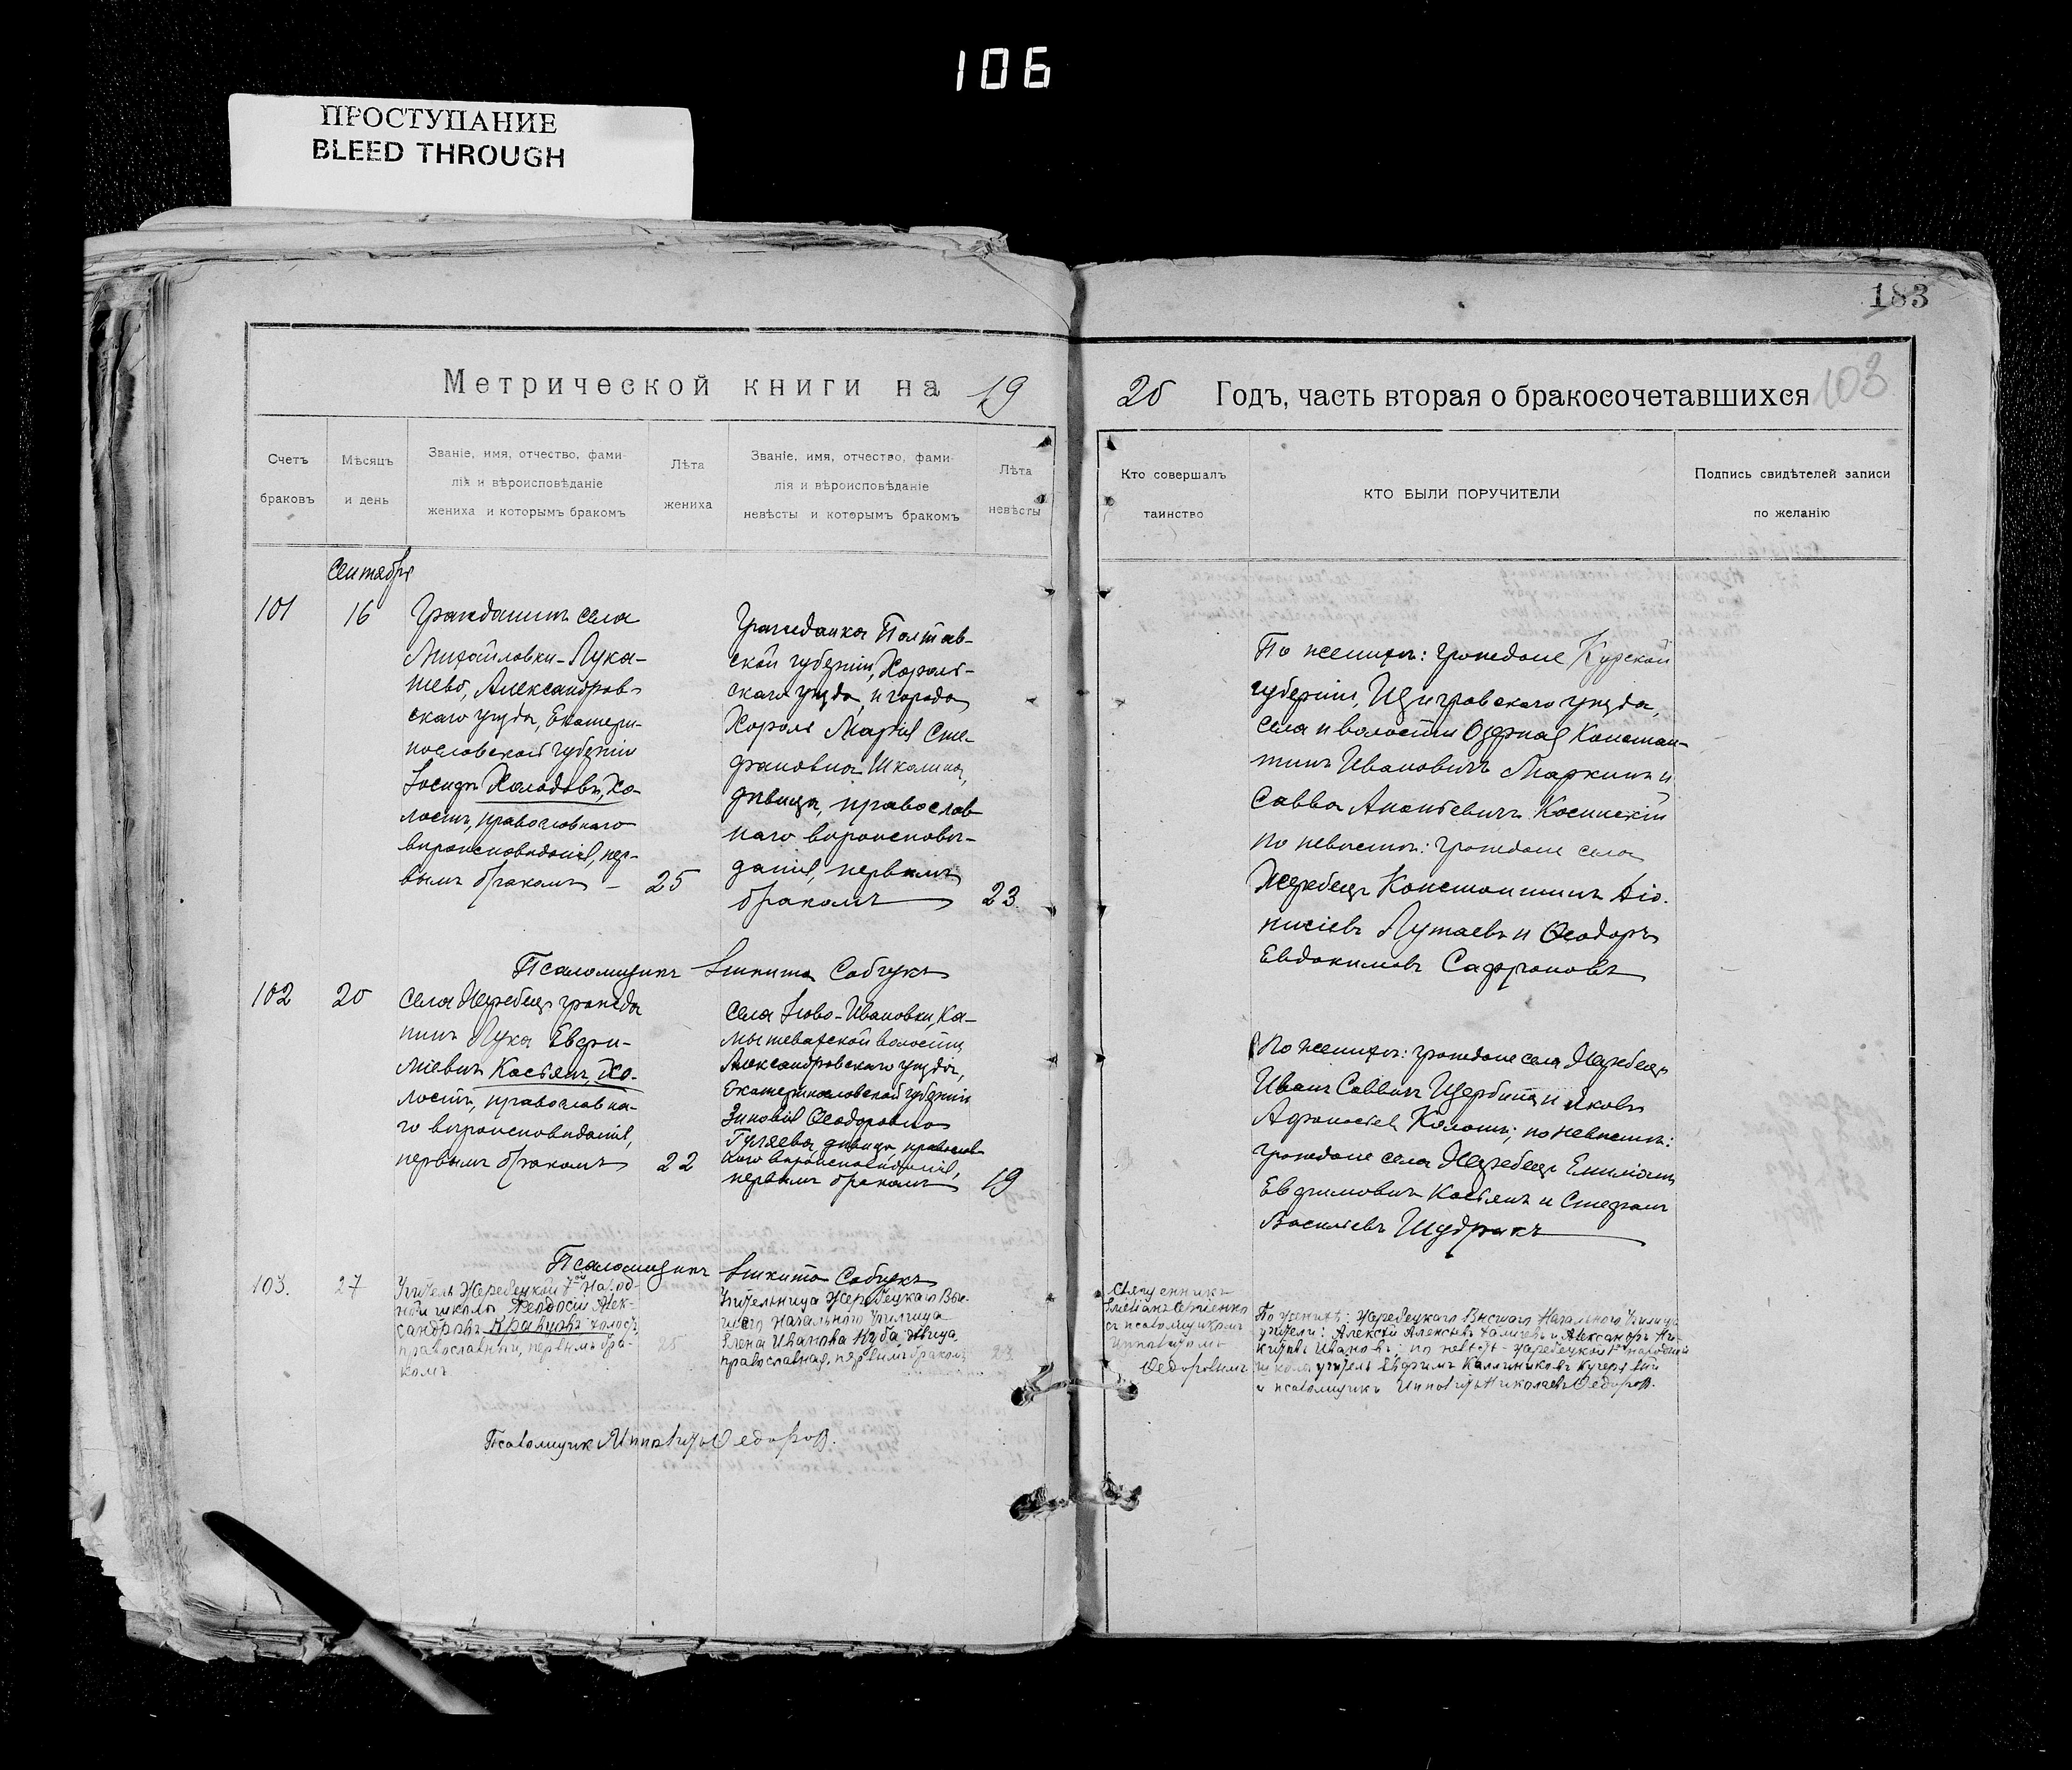 106
ПРОСТУПАНИЕ
BLEED THROUGH
183
103
Метрической книги на 19
20 Годъ, часть вторая о бракосочетавшихся
Счетъ
браковъ
Мѣсяцъ
и день
Званіе, имя, отчество, фами-
лія и вѣроисповѣданіе
жениха и которымъ бракомъ
Лѣта
жениха
Званіе, имя, отчество, фами-
лія и вѣроисповѣданіе
невѣсты и которымъ бракомъ
Лѣта
невѣсты
Кто совершалъ
таинство
КТО БЫЛИ ПОРУЧИТЕЛИ
Подпись свидѣтелей записи
по желанію
Сентября
101
16
Гражданинъ села
Михайловки-Лука-
шево, Александров-
скаго уѣзда, Екатери-
нославской губерніи
Іосифъ Холодовъ, хо-
лостъ, православнаго
вѣроисповѣданія, пер-
вымъ бракомъ – 25
Гражданка Полтав-
ской губерніи, Хороль-
скаго уѣзда, и города
Хороля Марія Сте-
фановна Шкалина,
дѣвица, православ-
наго вѣроисповѣ-
данія, первымъ
бракомъ 23
По женихѣ: граждане Курской
губерніи, Щигровскаго уѣзда,
села и волости Озерная Констан-
тинъ Ивановичъ Маркинъ и
Савва Ананьевичъ Косинскій
по невѣстѣ: граждане села
Жеребецъ Константинъ Діо-
нисіевъ Лутаевъ и Ѳеодоръ
Евдокимовъ Сафроновъ
Псаломщикъ Никита Собчукъ
102
20
Села Жеребецъ гражда
нинъ Лука Евфи-
міевичъ Касьянъ, хо-
лостъ, православна-
го вѣроисповѣданія,
первымъ бракомъ 22
Села Ново-Ивановки, Ка-
мышеватской волости
Александровскаго уѣзда,
Екатеринославской губерніи
Зиновія Ѳеодоровна
Гуляева, дѣвица, православ
наго вѣроисповѣданія,
первымъ бракомъ 19
По женихѣ: граждане села Жеребецъ
Иванъ Саввинъ Щербина и Яковъ
Афанасіев Калашъ; по невѣстѣ:
граждане села Жеребецъ Емиліанъ
Евфимовичъ Касьянъ и Стефанъ
Василіевъ Шудракъ
Псаломщикъ Никита Собчукъ
103.
27
Учитель Жеребецкой 1ой Народ-
ной школы Ѳеодосій Алек-
сандровъ Кравцовъ холостъ,
православный, первымъ бра-
комъ
25
Учительница Жеребецкаго Выс-
шаго Начальнаго Училища
Елена Иванова Куба, дѣвица,
православная, первымъ бракомъ
23
Священникъ
съ псаломщикомъ
Иннокнтіомъ
Ѳедоровымъ
По женихѣ: Жеребецкаго Высшаго Начальнаго Училища
учители: Алексѣй Алексѣевъ и Александръ Ни-
китовъ Ивановъ; по невѣстѣ – Жеребецкой 1ой народной
школы учитель Евфимъ Каллиниковъ Кучерявый
и псаломщикъ Николаевъ Ѳедоровъ.
Псаломщик Ѳедоровъ.